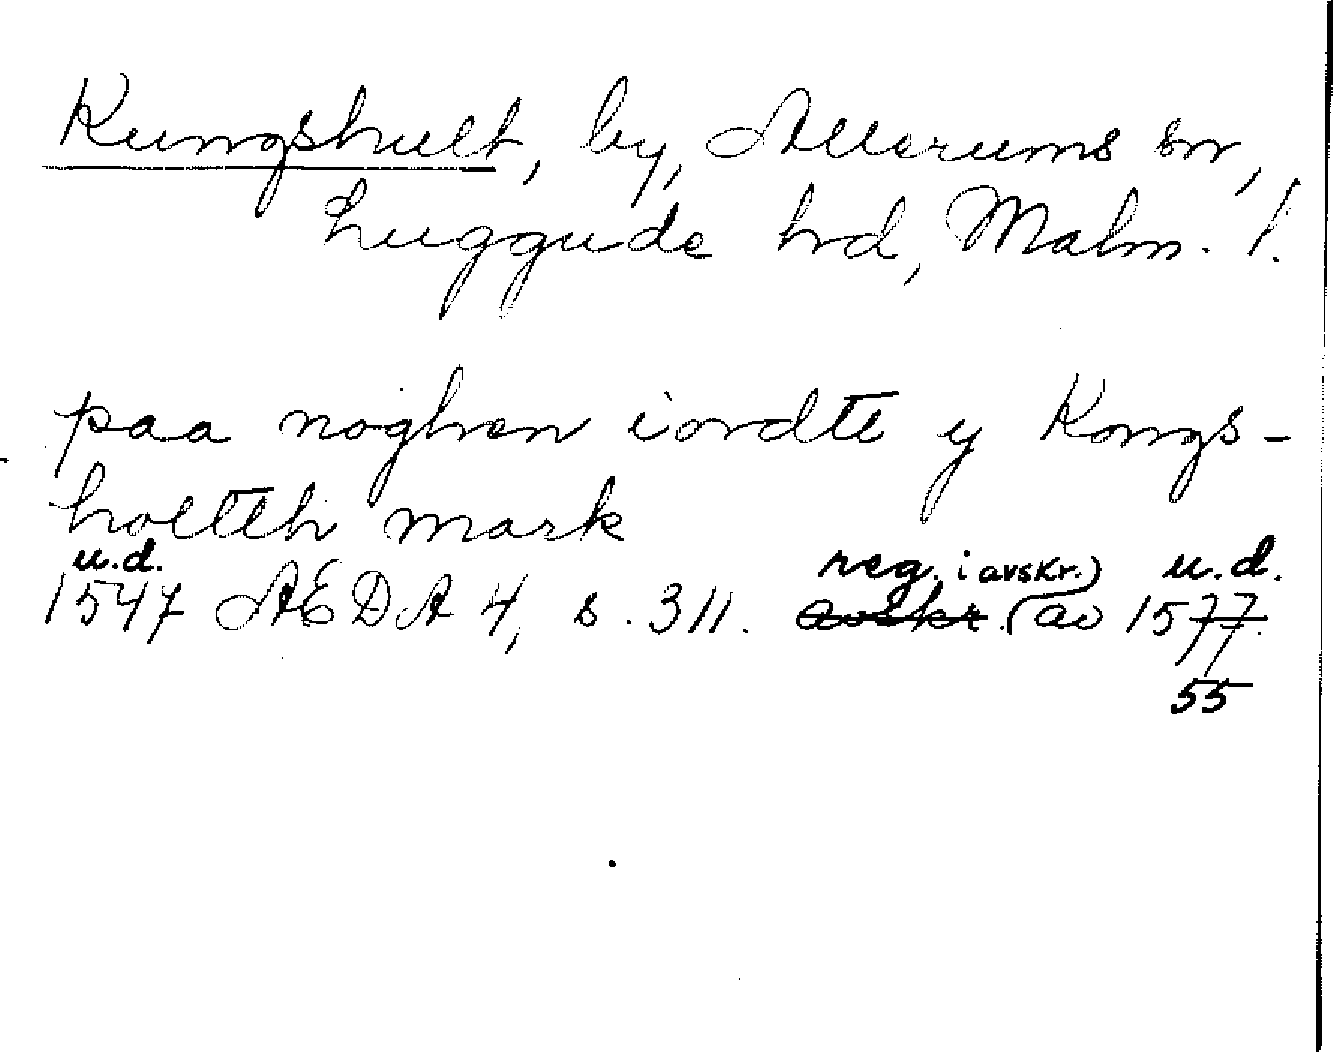 Kungshult, by, Allerums sn,
Luggude hd, Malm. l.
paa noghen iordte y Kongs-
holtthe mark
u.d. reg. i avskr.) u.d.
1547 AEDA 4, s. 311. avskr. (av 1577.
55